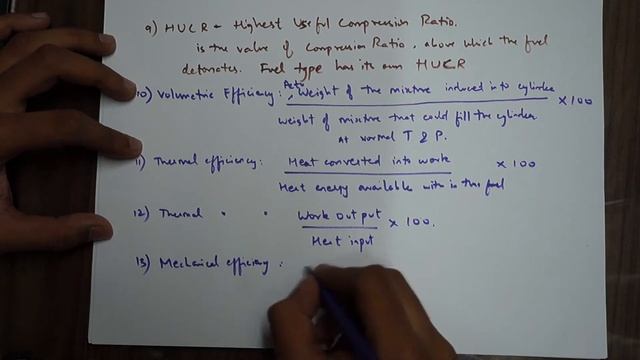 9) HUCR - Highest Useful Compression Ratio.
is the value of Compression Ratio, above which the fuel
detonates. Fuel type has its own HUCR
10) Volumetric Efficiency: Actu. Weight of the mixture induced into cylinder × 100
Weight of mixture that could fill the cylinder
at normal T & P.
11) Thermal efficiency: Heat converted into work × 100
Heat energy available with in the fuel
12) Thermal " " Work Output × 100.
Heat input
13) Mechanical efficiency :